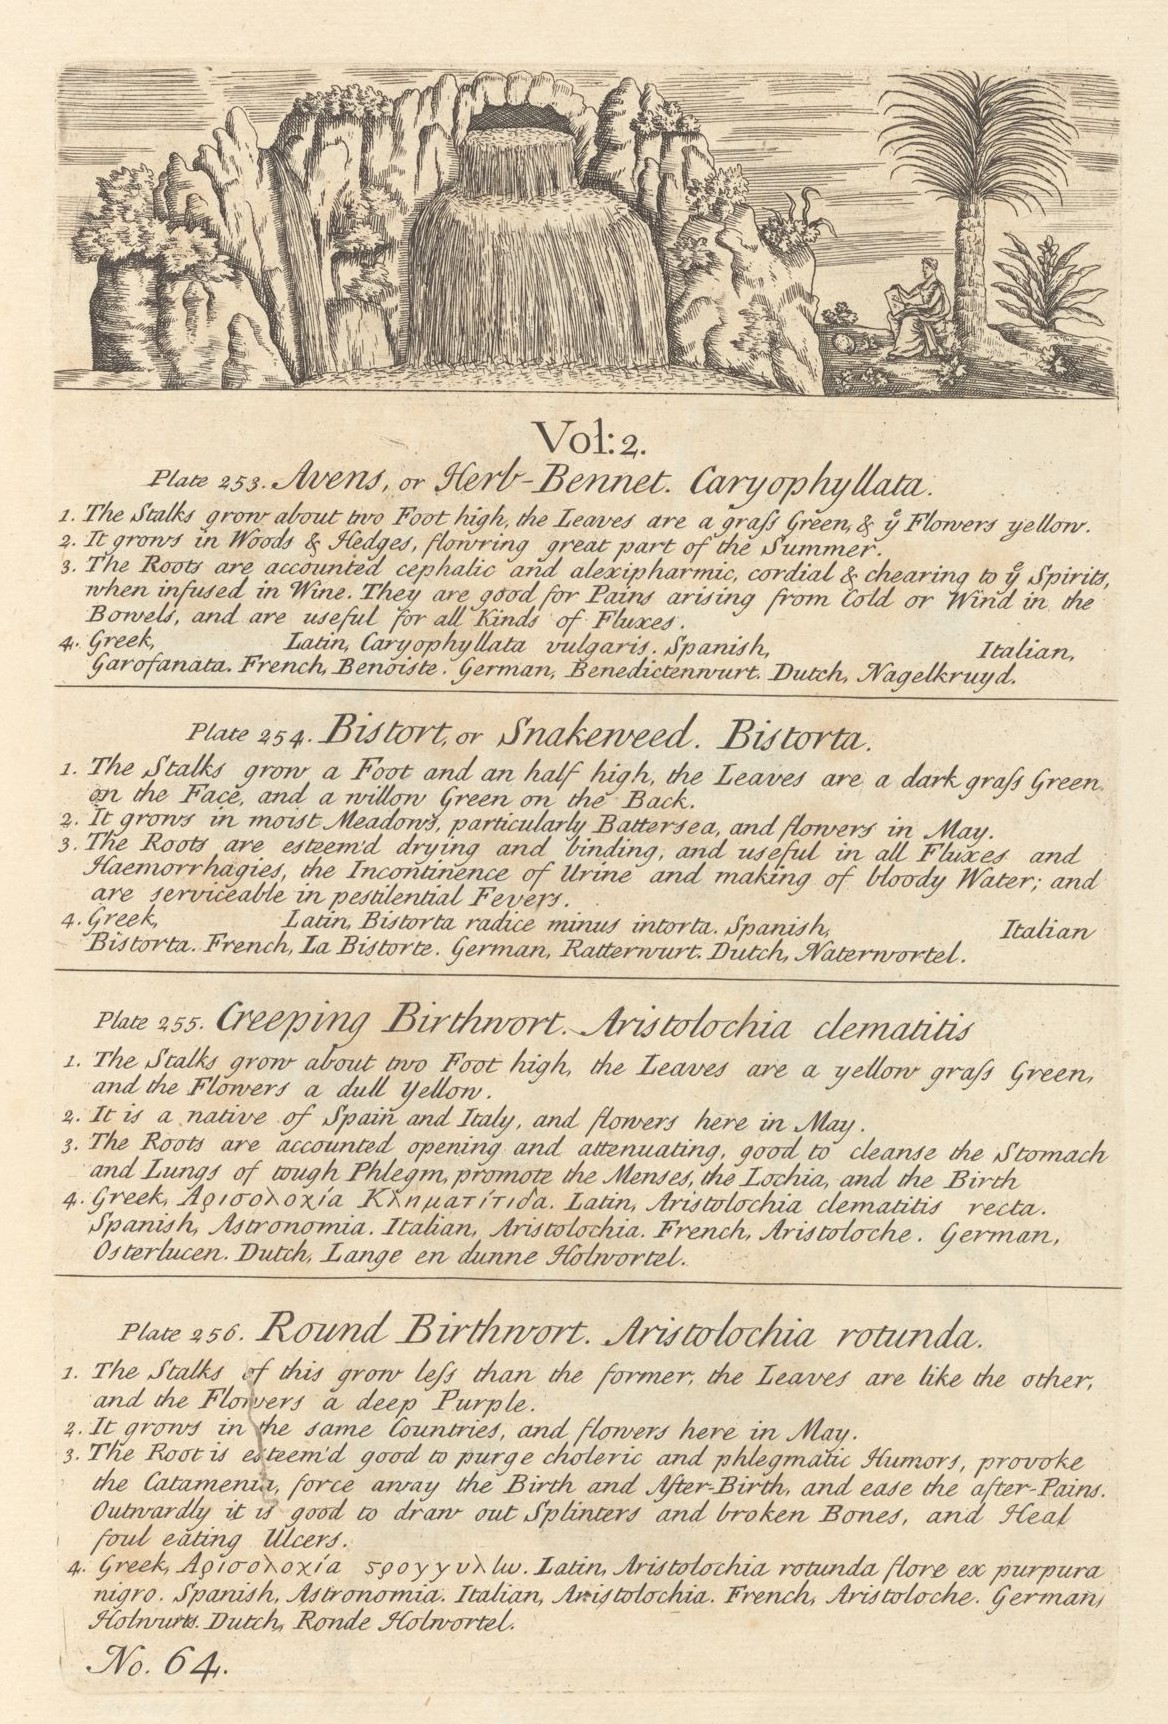 Vol:2.
Plate 253. Avens, or Herb-Bennet. Caryophyllata.
1. The Stalks grow about two Foot high, the Leaves are a graſs Green, & yͤ Flowers yellow.
2. It grows in Woods & Hedges, flowring great part of the Summer.
3. The Roots are accounted cephalic and alexipharmic, cordial & chearing to yͤ Spirits,
when infused in Wine. They are good for Pains arising from Cold or Wind in the
Bowels, and are useful for all Kinds of Fluxes.
4. Greek, Latin, Caryophyllata vulgaris. Spanish, Italian,
Garofanata. French, Benoiste. German, Benedictenwurt. Dutch, Nagelkruyd.
Plate 254. Bistort, or Snakeweed. Bistorta.
1. The Stalks grow a Foot and an half high, the Leaves are a dark graſs Green
on the Face, and a willow Green on the Back.
2. It grows in moist Meadows, particularly Battersea, and flowers in May.
3. The Roots are esteem'd drying and binding, and useful in all Fluxes and
Haemorrhagies, the Incontinence of Urine and making of bloody Water; and
are serviceable in pestilential Fevers.
4. Greek, Latin, Bistorta radice minus intorta. Spanish, Italian
Bistorta. French, La Bistorte. German, Ratterwurt. Dutch, Naterwortel.
Plate 255. Creeping Birthwort. Aristolochia clematitis
1. The Stalks grow about two Foot high, the Leaves are a yellow graſs Green,
and the Flowers a dull Yellow.
2. It is a native of Spain and Italy, and flowers here in May.
3. The Roots are accounted opening and attenuating, good to cleanse the Stomach
and Lungs of tough Phlegm, promote the Menses, the Lochia, and the Birth
4. Greek, Αριϛολοχία Κληματίτιδα. Latin, Aristolochia clematitis recta.
Spanish, Astronomia. Italian, Aristolochia. French, Aristoloche. German,
Osterlucen. Dutch, Lange en dunne Holwortel.
Plate 256. Round Birthwort. Aristolochia rotunda.
1. The Stalks of this grow leſs than the former, the Leaves are like the other,
and the Flowers a deep Purple.
2. It grows in the same Countries, and flowers here in May.
3. The Root is esteem'd good to purge choleric and phlegmatic Humors, provoke
the Catamenia, force away the Birth and After-Birth, and ease the after-Pains.
Outwardly it is good to draw out Splinters and broken Bones, and Heal
foul eating Ulcers.
4. Greek, Αριϛολοχία ϛρογγυλω. Latin, Aristolochia rotunda flore ex purpura
nigro. Spanish, Astronomia. Italian, Aristolochia. French, Aristoloche. German,
Holwurts. Dutch, Ronde Holwortel.
No. 64.